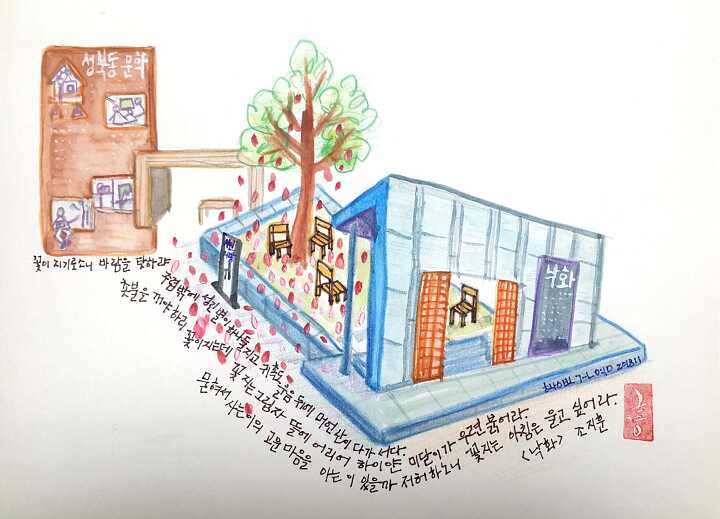 성북동
낙화
꽃이 지기로소니 바람을 탓하랴
주렴밖에 성긴별이 하나둘지고 귀촉도 울음뒤에 머언산이 다가서다.
촛불을 꺼야하리 꽃이지는데 꽃지는그림자 뜰에 어리어 하이얀 미닫이가 우련 붉어라.
묻혀서 사는이의 고운마음을 아는 이 있을까 저허하노니 꽃지는 아침은 울고 싶어라.
<낙화> 조지훈